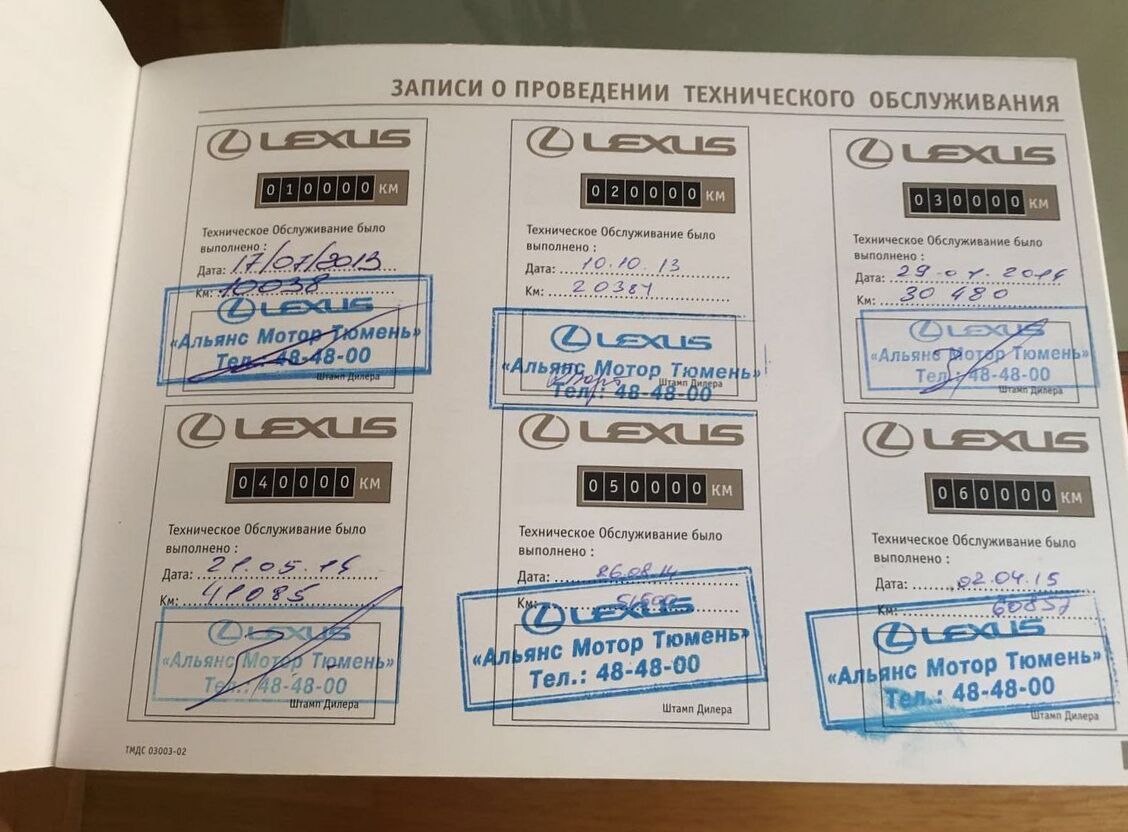 ЗАПИСИ О ПРОВЕДЕНИИ ТЕХНИЧЕСКОГО ОБСЛУЖИВАНИЯ
LEXUS
010000 КМ
Техническое Обслуживание было
выполнено :
Дата: 17/07/2013
Км: 10038
LEXUS
«Альянс Мотор Тюмень»
Тел.: 48-48-00
Штамп Дилера
LEXUS
020000 КМ
Техническое Обслуживание было
выполнено :
Дата: 10.10.13
Км: 20381
LEXUS
«Альянс Мотор Тюмень»
Штамп Дилера
Тел.: 48-48-00
LEXUS
030000 КМ
Техническое Обслуживание было
выполнено :
Дата: 29.01.2014
Км: 30 480
LEXUS
«Альянс Мотор Тюмень»
Тел.: 48-48-00
Штамп Дилера
LEXUS
040000 КМ
Техническое Обслуживание было
выполнено :
Дата: 21.05.14
Км: 41085
LEXUS
«Альянс Мотор Тюмень»
Тел.: 48-48-00
Штамп Дилера
LEXUS
050000 КМ
Техническое Обслуживание было
выполнено :
Дата: 26.08.14
Км:
LEXUS
«Альянс Мотор Тюмень»
Тел.: 48-48-00
Штамп Дилера
LEXUS
060000 КМ
Техническое Обслуживание было
выполнено :
Дата: 02.04.15
Км: 60857
LEXUS
«Альянс Мотор Тюмень»
Тел.: 48-48-00
Штамп Дилера
ТМДС 03003-02